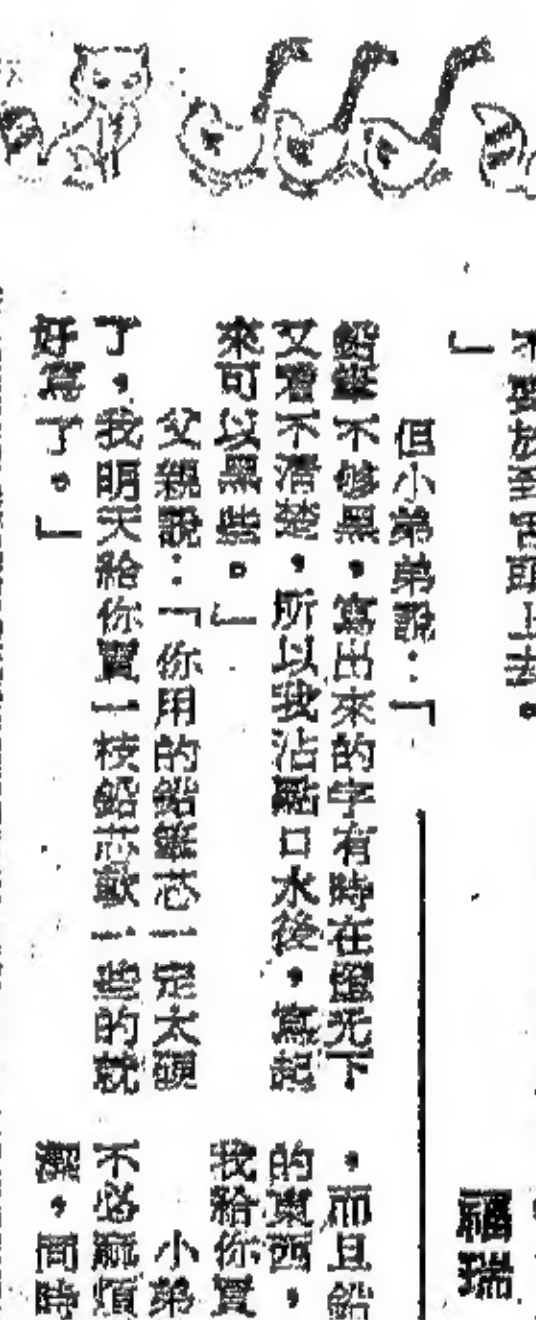 不要放到舌頭上去。
」
但小弟弟說：「
鉛筆不够黑，寫出來的字有時在燈光下
又看不清楚，所以我沾點口水後，寫起
來可以黑些。」
父親說：「你用的鉛筆芯一定太硬
了，我明天給你買一枝鉛芯軟一些的就
好寫了。」
福瑞
，而且鉛
的東西，
我給你買
小弟
不必麻煩
潔，同時